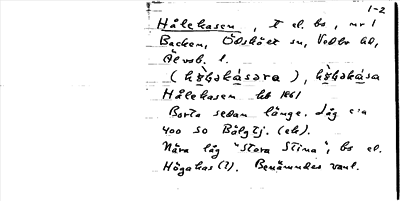 1-2
Hålekasen, t el. bs, nr 1
Backen, Ödskölt sn, Vedbo hd,
Älvsb. l.
Hålekasen hb 1861
Borta sedan länge. Låg c:a
400 SO Bölgtj. (ek).
Nära låg "Stora Stina", bs el.
Högakas (?). Benämndes vanl.